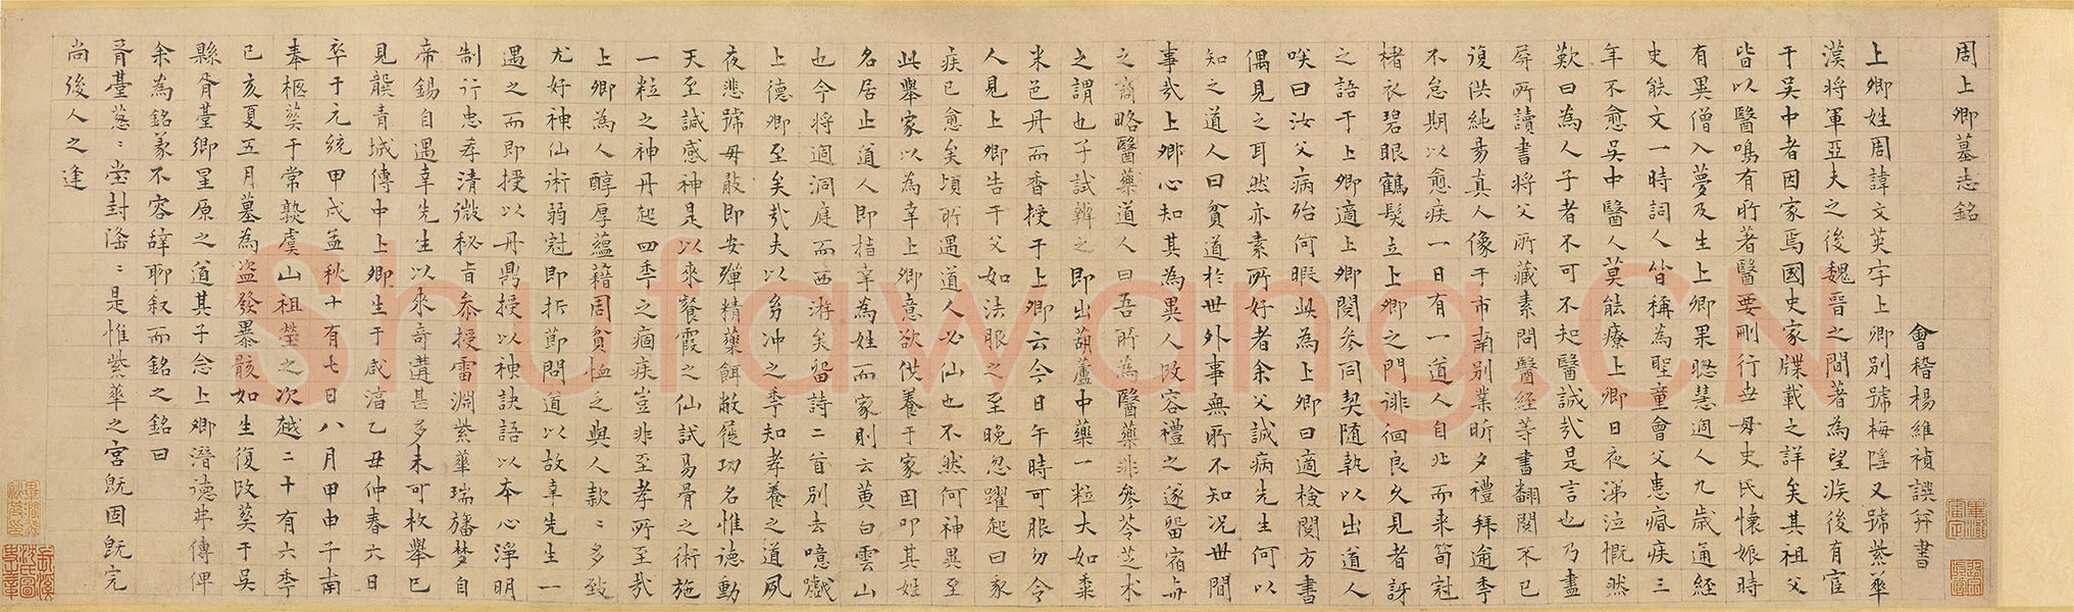 周上卿墓志銘
會稽楊維禎譔并書
上卿姓周諱文英字上卿別號梅隱又號紫華
漢將軍亞夫之後魏晉之間著為望族後有宦
于吳中者因家焉國史家牒載之詳矣其祖父
皆以醫鳴有所著醫要刪行世母史氏懷娠時
有異僧入夢及生上卿果聰慧過人九歲通經
史能文一時詞人皆稱為聖童會父患瘋疾三
年不愈吳中醫人莫能療上卿日夜涕泣慨然
歎曰為人子者不可不知醫誠哉是言也乃盡
屏所讀書將父所藏素問醫經等書翻閱不已
復供純昜真人像于市南別業昕夕禮拜逾季
不怠期以愈疾一日有一道人自北而来箬冠
楮衣碧眼鶴髮立上卿之門徘徊良久見者訝
之語于上卿適上卿閱参同契随執以出道人
咲曰汝父病殆何暇此為上卿曰適檢閱方書
偶見之耳然亦素所好者余父誠病先生何以
知之道人曰貧道於世外事無所不知况世間
事哉上卿心知其為異人改容禮之遂留宿与
之商略醫藥道人曰吾所為醫藥非參苓芝术
之謂也子試辨之即出葫蘆中藥一粒大如黍
米色丹而香授于上卿云今日午時可服勿令
人見上卿告于父如法服之至晚忽躍起曰豕
疾已愈矣頃所遇道人必仙也不然何神異至
此舉家以為幸上卿意欲供養于家因叩其姓
名居止道人即指幸為姓而家則云黄白雲山
也今將適洞庭而西游矣留詩二首別去噫戲
上德卿至矣哉夫以㓜冲之季知孝養之道夙
夜悲號毋敢即安殫精藥餌敝屣功名惟德動
天至諴感神是以來餐霞之仙試昜骨之術施
一粒之神丹起四季之痼疾豈非至孝所至哉
上卿為人醇厚蘊藉周貧恤乏與人款〻多致
尤好神仙術弱冠即折節問道以故幸先生一
遇之而即授以丹鼎授以神訣語以本心淨明
制行忠孝清微秘旨叅授雷淵紫華瑞旛夢自
帝錫自遇幸先生以來奇遘甚多未可枚舉已
見龔青城傳中上卿生于咸淳乙丑仲春六日
卒于元統甲戌孟秋十有七日八月甲申子南
奉柩𦵏于常孰虞山祖塋之次越二十有六季
己亥夏五月墓為盗發暴骸如生復改𦵏于吳
縣胥臺鄉呈原之道其子念上卿潜德弗傳俾
余為銘義不容辞聊叙而銘之銘曰
胥臺蔥〻堂封隆〻是惟紫華之宮既固既完
尚後人之逢
Shufawang.CN